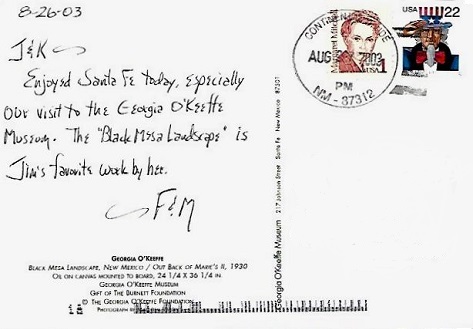 8-26-03
J&K
Enjoyed Santa Fe today, especially
our visit to the Georgia O'Keeffe
Museum. The "Black Mesa Landscape" is
Jim's favorite work by her.
F&M
GEORGIA O'KEEFFE
BLACK MESA LANDSCAPE, NEW MEXICO / OUT BACK OF MARIE'S II, 1930
OIL ON CANVAS MOUNTED TO BOARD, 24 1/4 X 36 1/4 IN.
GEORGIA O'KEEFFE MUSEUM
GIFT OF THE BURNETT FOUNDATION
© THE GEORGIA O'KEEFFE FOUNDATION
PHOTOGRAPH
Georgia O'Keeffe Museum 217 Johnson Street Santa Fe New Mexico 87501
CONTINENTAL DIVIDE
AUG 2003
PM
NM - 87312
Margaret Mitchell
USA 1
USA 22